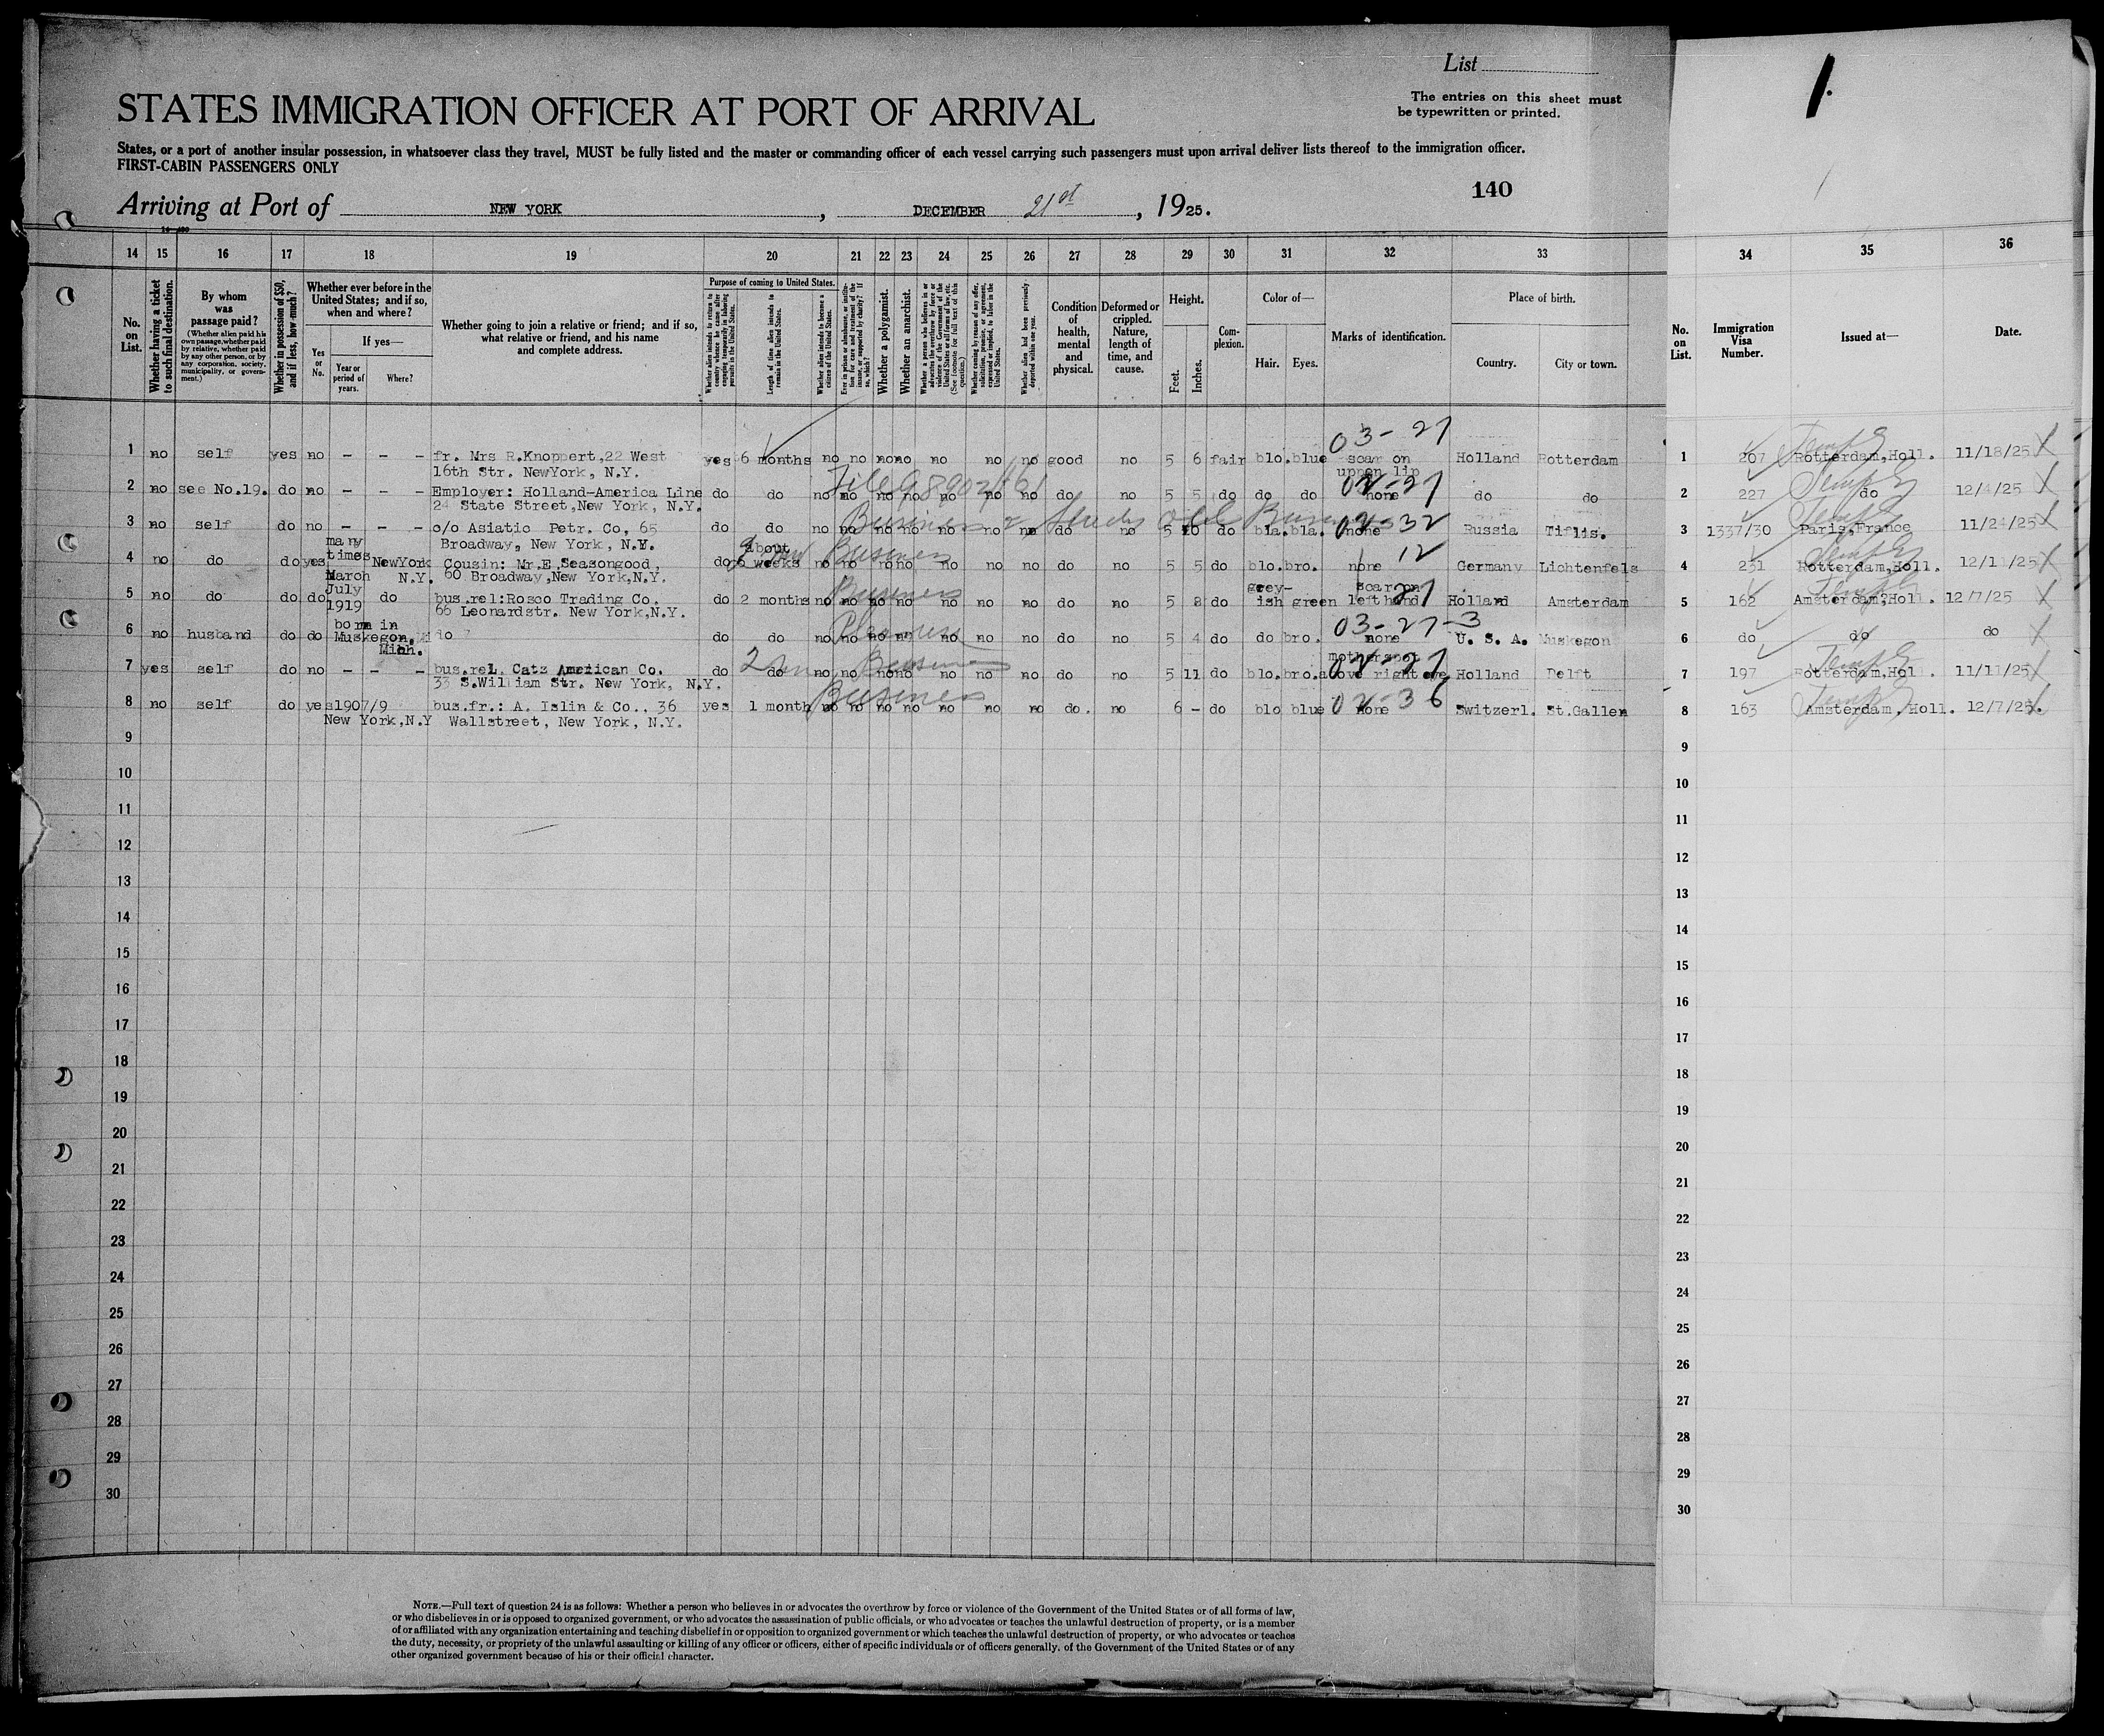 List
The entries on this sheet must
be typewritten or printed.
STATES IMMIGRATION OFFICER AT PORT OF ARRIVAL
States, or a port of another insular possession, in whatsoever class they travel, MUST be fully listed and the master or commanding officer of each vessel carrying such passengers must upon arrival deliver lists thereof to the immigration officer.
FIRST-CABIN PASSENGERS ONLY
140
Arriving at Port of NEW YORK, DECEMBER 21st, 1925.
14 15 16 17 18 19 20 21 22 23 24 25 26 27 28 29 30 31 32 33 34 35 36
No. on List.
Whether having a ticket to such final destination.
By whom was passage paid?
(Whether alien paid his own passage, whether paid by relative, whether paid by any other person, or by any corporation, society, municipality, or government.)
Whether in possession of $50, and if less, how much?
Whether ever before in the United States; and if so, when and where?
Yes or No.
If yes—
Year or period of years.
Where?
Whether going to join a relative or friend; and if so, what relative or friend, and his name and complete address.
Purpose of coming to United States.
Length of time alien intends to remain in the United States.
Whether alien intends to become a citizen of the United States.
Whether a polygamist.
Whether an anarchist.
Condition of health, mental and physical.
Deformed or crippled. Nature, length of time, and cause.
Height.
Feet.
Inches.
Complexion.
Color of—
Hair.
Eyes.
Marks of identification.
Place of birth.
Country.
City or town.
No. on List.
Immigration Visa Number.
Issued at—
Date.
03-27
1 no self yes no – – – fr. Mrs R.Knoppert,22 West yes 6 months no no no no no no no good no 5 6 fair blo. blue scar on Holland Rotterdam 1 207 Rotterdam,Holl. 11/18/25
16th Str. NewYork, N.Y. upper lip
File 98902/461
02-27
2 no see No.19. do no – – – Employer: Holland-America Line do do no no no no no no no do no 5 5 do do do none do do 2 227 do 12/4/25
24 State Street,New York, N.Y.
Business & Study Oil Business
02-32
3 no self do no – – – c/o Asiatic Petr. Co, 65 do do no no no no no no no do no 5 10 do bla. bla. none Russia Tiflis. 3 1337/30 Paris,France 11/24/25
Broadway, New York, N.Y.
many times about Business 12
4 no do do yes NewYork Cousin: Mr.E.Seasongood, do 6 weeks no no no no no no no do no 5 5 do blo. bro. none Germany Lichtenfels 4 231 Rotterdam,Holl. 12/11/25
March N.Y. 60 Broadway,New York,N.Y.
July Business grey- scar on 27
5 no do do do 1919 do bus.rel:Rosco Trading Co. do 2 months no no no no no no no do no 5 8 do ish green left hand Holland Amsterdam 5 162 Amsterdam,Holl. 12/7/25
66 Leonardstr. New York,N.Y.
born in Pleasure 03-27-3
6 no husband do do Muskegon, do do do no no no no no no no do no 5 4 do do bro. none U. S. A. Muskegon 6 do do do
Mich.
2 Business motherspot 02-27
7 yes self do no – – – bus.rel. Catz American Co. do do no no no no no no no do no 5 11 do blo. bro. above right eye Holland Delft 7 197 Rotterdam,Holl. 11/11/25
33 S.William Str. New York, N.Y.
Business 02-36
8 no self do yes 1907/9 bus.fr.: A. Islin & Co., 36 yes 1 month no no no no no no no do. no 6 – do blo blue none Switzerl. St.Gallen 8 163 Amsterdam,Holl. 12/7/25.
New York,N.Y Wallstreet, New York, N.Y.
9 9
10 10
11 11
12 12
13 13
14 14
15 15
16 16
17 17
18 18
19 19
20 20
21 21
22 22
23 23
24 24
25 25
26 26
27 27
28 28
29 29
30 30
NOTE.—Full text of question 24 is as follows: Whether a person who believes in or advocates the overthrow by force or violence of the Government of the United States or of all forms of law,
or who disbelieves in or is opposed to organized government, or who advocates the assassination of public officials, or who advocates or teaches the unlawful destruction of property, or is a member
of or affiliated with any organization entertaining and teaching disbelief in or opposition to organized government or which teaches the unlawful destruction of property, or who advocates or teaches
the duty, necessity, or propriety of the unlawful assaulting or killing of any officer or officers, either of specific individuals or of officers generally, of the Government of the United States or of any
other organized government because of his or their official character.